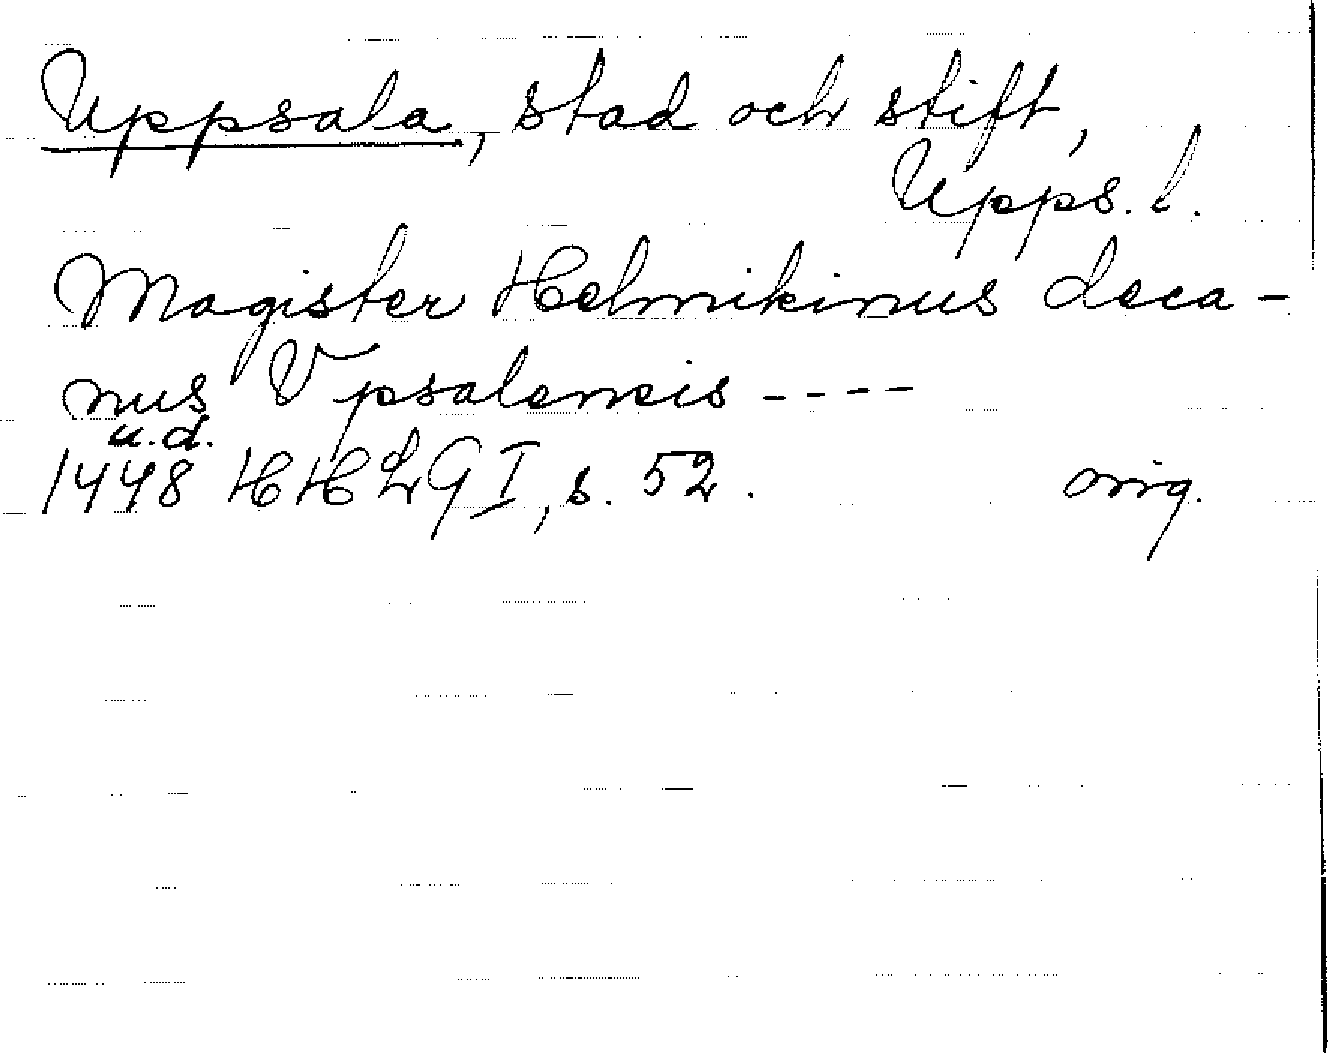 Uppsala, stad och stift,
Upps. l.
Magister Helmikinus deca-
nus Vpsalensis ----
u.d.
1448 HHLG I, s. 52. orig.